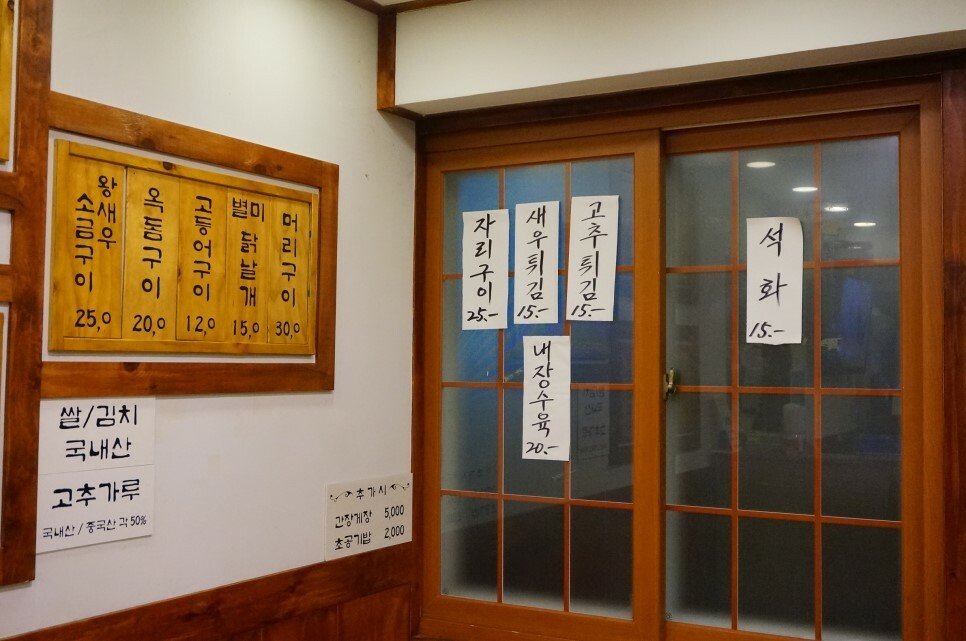 왕새우
소금구이
25,0
옥돔구이
20,0
고등어구이
12,0
별미
닭날개
15,0
머리구이
30,0
쌀/김치
국내산
고추가루
국내산/중국산 각50%
추가시
간장게장 5,000
초공기밥 2,000
자리구이
25.-
새우튀김
15.-
고추튀김
15.-
내장수육
20.-
석화
15.-